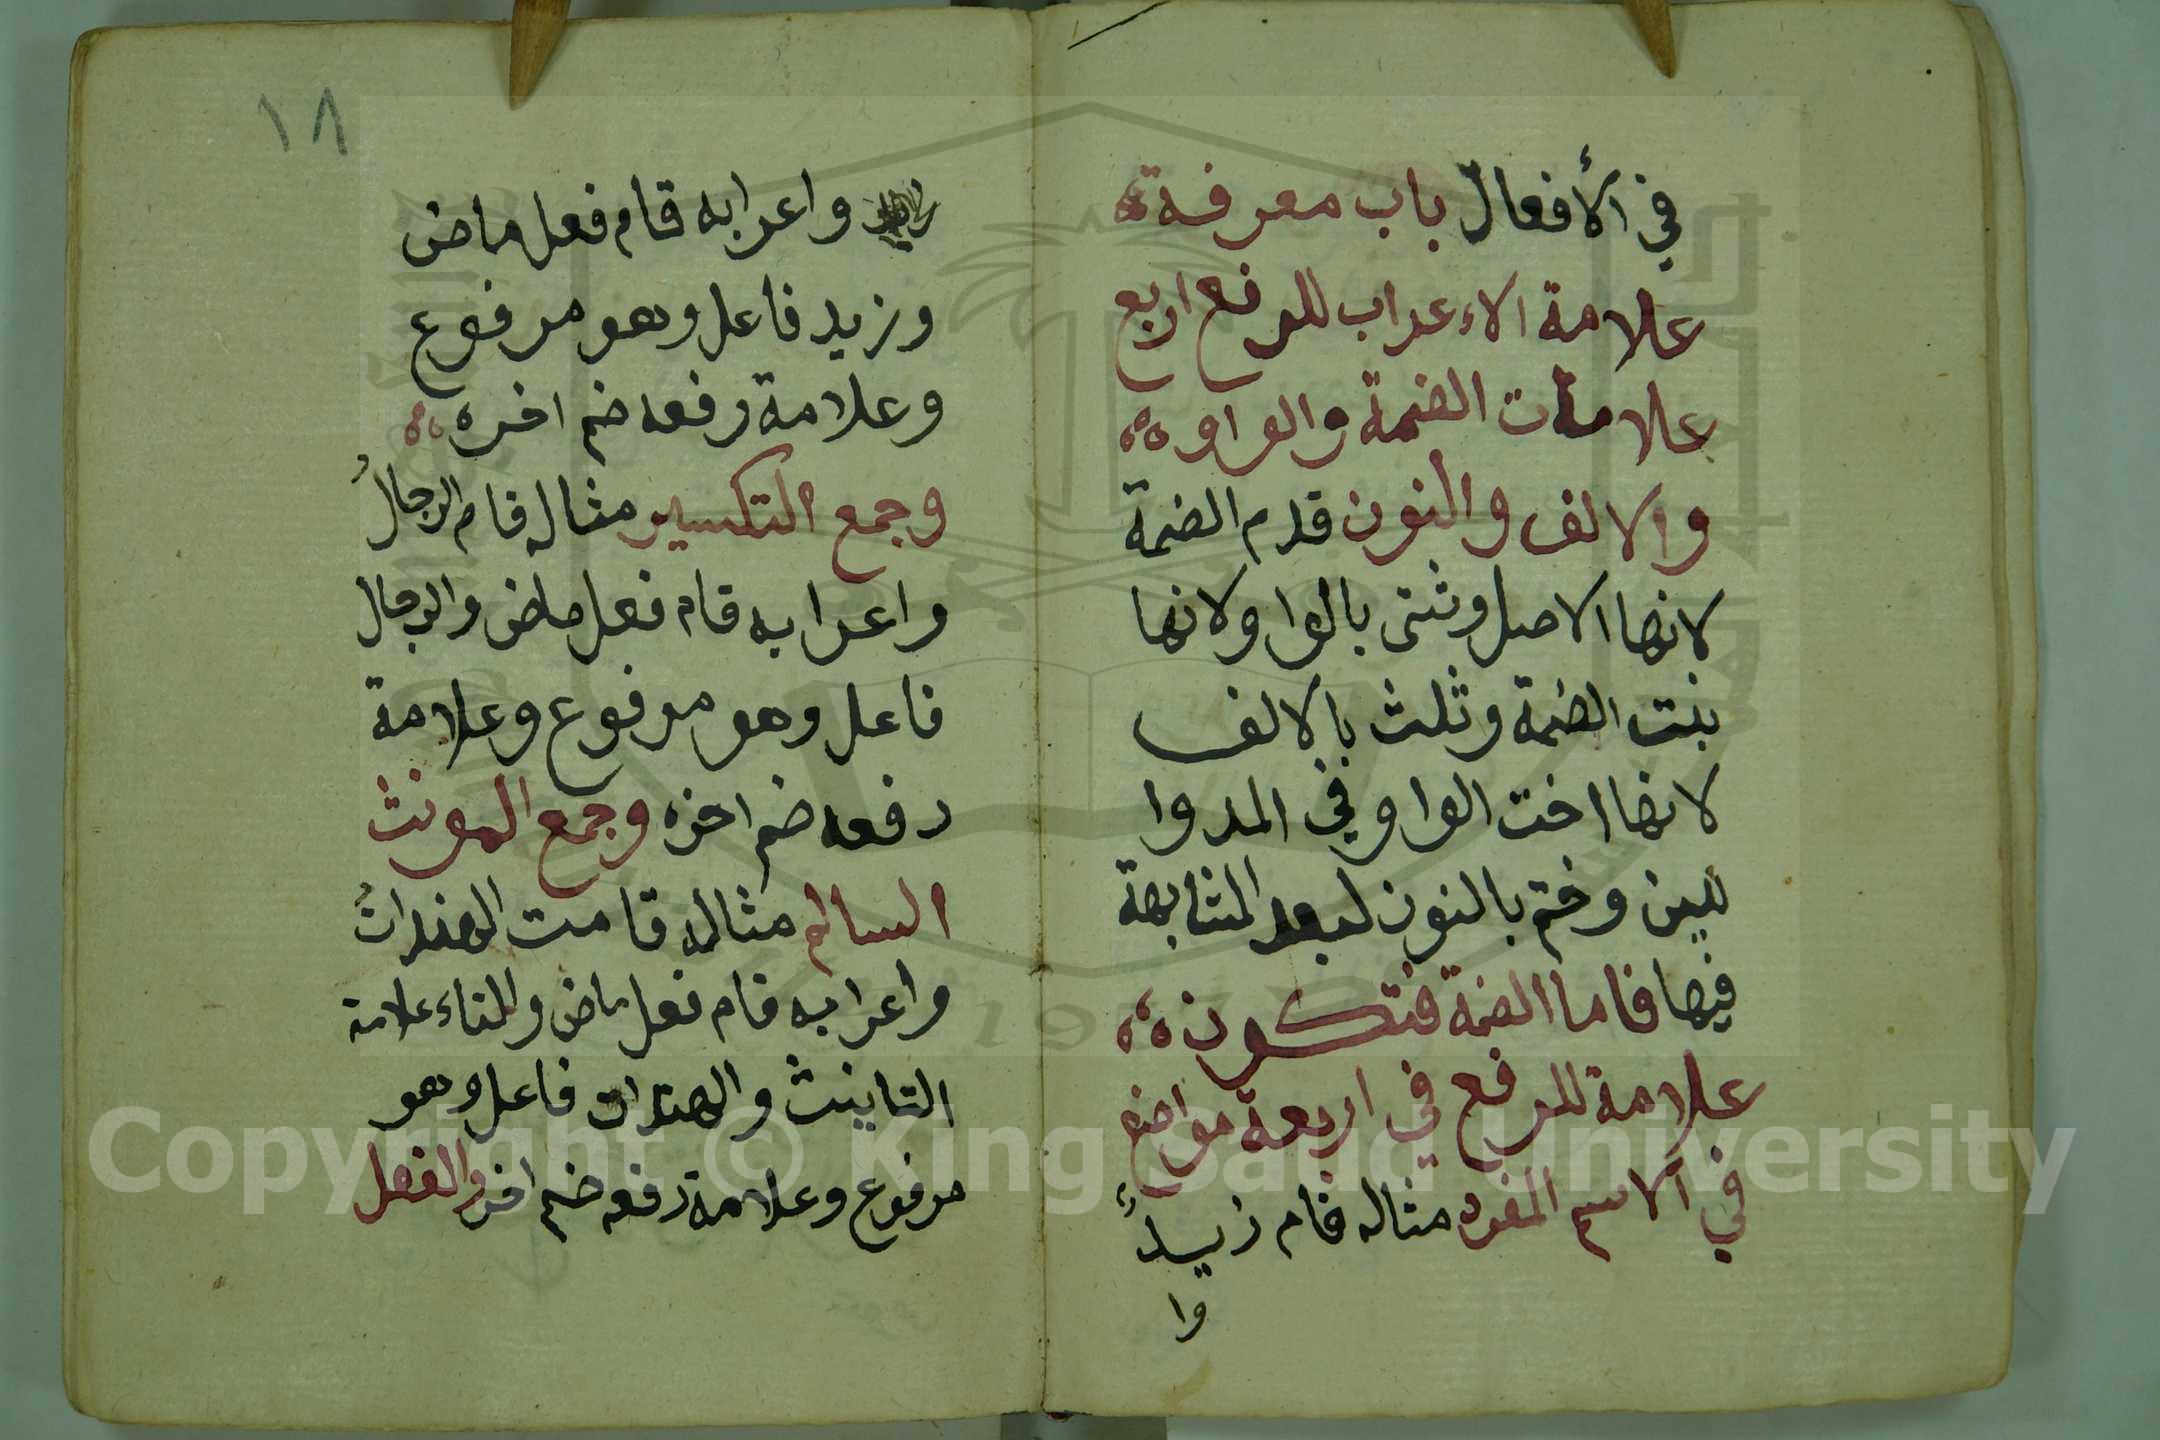 في الأفعال باب معرفة
علامة الاءعراب للرفع اربع
علامات الضمة والواو
والالف والنون قدم الضمة
لانها الاصل وثنى بالوا ولانها
بنت الضمة وثلث بالالف
لانها اخت الواو في المد وا
للين وختم بالنون لبعد المشابهة
فيها فاما الضمة فتكون
علامة للرفع في اربعة مواضع
في الاسم المفرد مثاله قام زيدٌ
وا
١٨
واعرابه قام فعل ماض
وزيد فاعل وهو مرفوع
وعلامة رفعه ضم اخره
وجمع التكسير مثاله قام الرجالُ
واعرابه قام فعل ماض والرجال
فاعل وهو مرفوع وعلامة
رفعه ضم اخره وجمع المونث
السالم مثاله قامت الهنداتُ
واعرابه قام فعل ماض والتاء علامة
التاينث والهندات فاعل وهو
مرفوع وعلامة رفعه ضم اخره والفعل
Copyright © King Saud University
1957